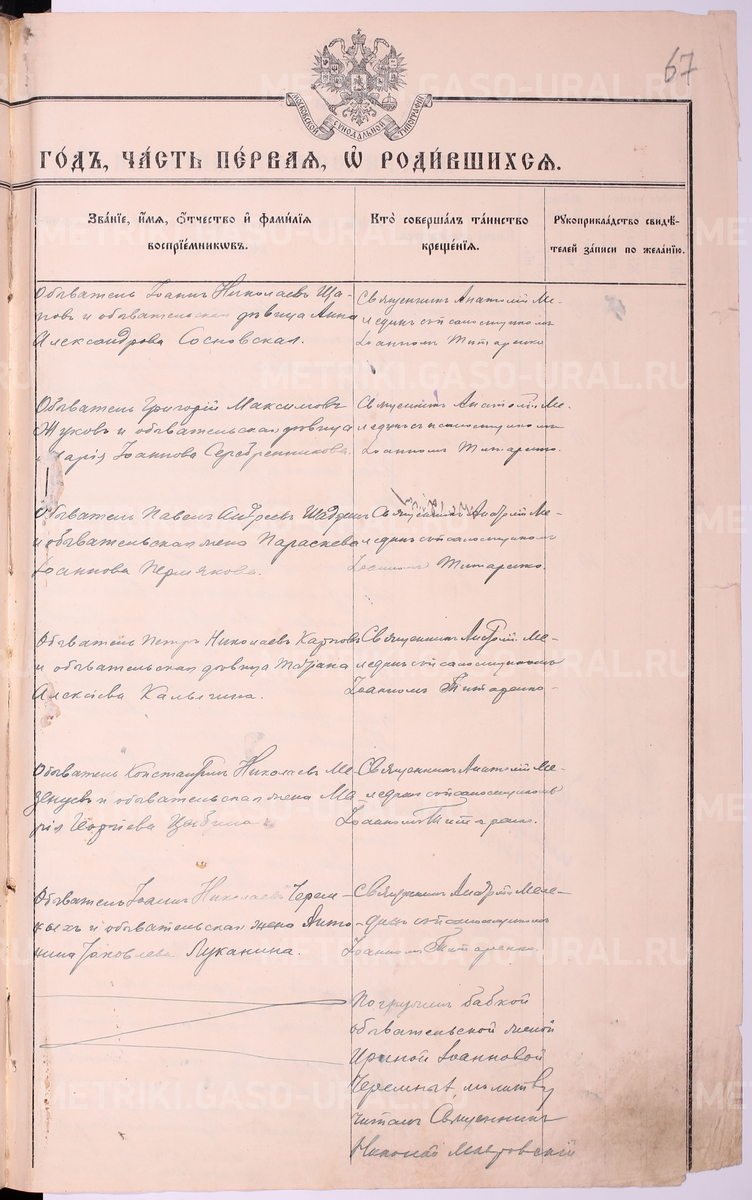 67
МОСКОВСКОЙ СѴНОДАЛЬНОЙ ТИПОГРАФІИ
ГО́ДЪ, ЧА́СТЬ ПЕ́РВАЯ, Ѡ҆ РОДИ́ВШИХСЯ.
Зва́ніе, и҆́мя, ѻ҆́тчество и҆ фами́лія
воспріе́мниковъ.
Кто̀ соверша́лъ та́инство
креще́нія.
Рꙋкоприкла́дство свидѣ́-
телей за́писи по жела́нію.
Обыватель Іоаннъ Николаевъ Ща-
повъ и обывательская дѣвица Анна
Александрова Сосновская.
Священникъ Анатолій Ме-
ледин съ псаломщикомъ
Іоанномъ Титаренко
Обыватель Григорій Максимовъ
Жуковъ и обывательская дѣвица
Марія Іоаннова Серебренникова.
Священникъ Анатолій Ме-
ледин съ псаломщикомъ
Іоанномъ Титаренко.
Обыватель Павелъ Андреевъ
и обывательская жена Параскева
Іоаннова Пермякова.
Священникъ Анатолій Ме-
ледин съ псаломщикомъ
Іоанномъ Титаренко.
Обыватель Петръ Николаевъ Карповъ
и обывательская дѣвица Татіана
Алексіева Калягина.
Священникъ Анатолій Ме-
ледин съ псаломщикомъ
Іоанномъ Титаренко
Обыватель Константинъ Николаевъ Ме-
зенцевъ и обывательская жена Ма-
рія Георгіева
Священникъ Анатолій Ме-
ледин съ псаломщикомъ
Іоанномъ Титаренко.
Обыватель Іоаннъ Николаевъ Черем-
ныхъ и обывательская жена Анто-
нина Іаковлева Луканина.
Священникъ Анатолій Меле-
дин съ псаломщикомъ
Іоанномъ Титаренко
Погружен бабкой
обывательской женой
Ириной Іоанновой
Черемных, молитву
читалъ Священникъ
Николай Мавровскій
METRIKI.GASO-URAL.RU